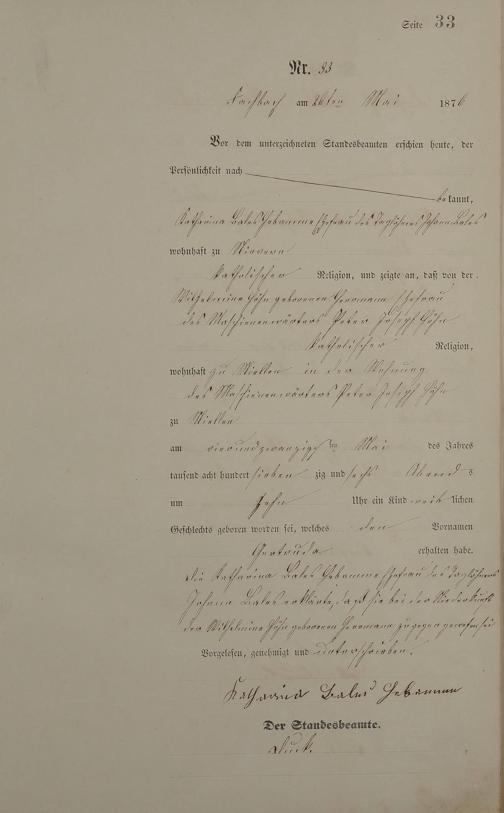 Seite 33
Nr. 33
Fachbach am 26ten Mai 1876
Vor dem unterzeichneten Standesbeamten erschien heute, der
Persönlichkeit nach
bekannt,
Katharina Bales Hebamme Ehefrau des Taglöhners Johann Bales
wohnhaft zu Nievern
katholischer Religion, und zeigte an, daß von der
Wilhelmine Höhn geborenen Herrmann Ehefrau
des Maschienenwärters Peter Joseph Höhn
katholischer Religion,
wohnhaft zu Miellen in der Wohnung
des Maschienenwärters Peter Joseph Höhn
zu Miellen
am vierundzwanzigsten Mai des Jahres
tausend acht hundert sieben zig und sechs Abend s
um Zehn Uhr ein Kind weib lichen
Geschlechts geboren worden sei, welches den Vornamen
Gertruda erhalten habe.
Die Katharina Bales Hebamme Ehefrau des Taglöhners
Johann Bales erklärte, daß sie bei der Niederkunft
der Wilhelmine Höhn geborenen Herrmann zugegen gewesen sei
Vorgelesen, genehmigt und unterschrieben.
Katharina Bales Hebamme
Der Standesbeamte.